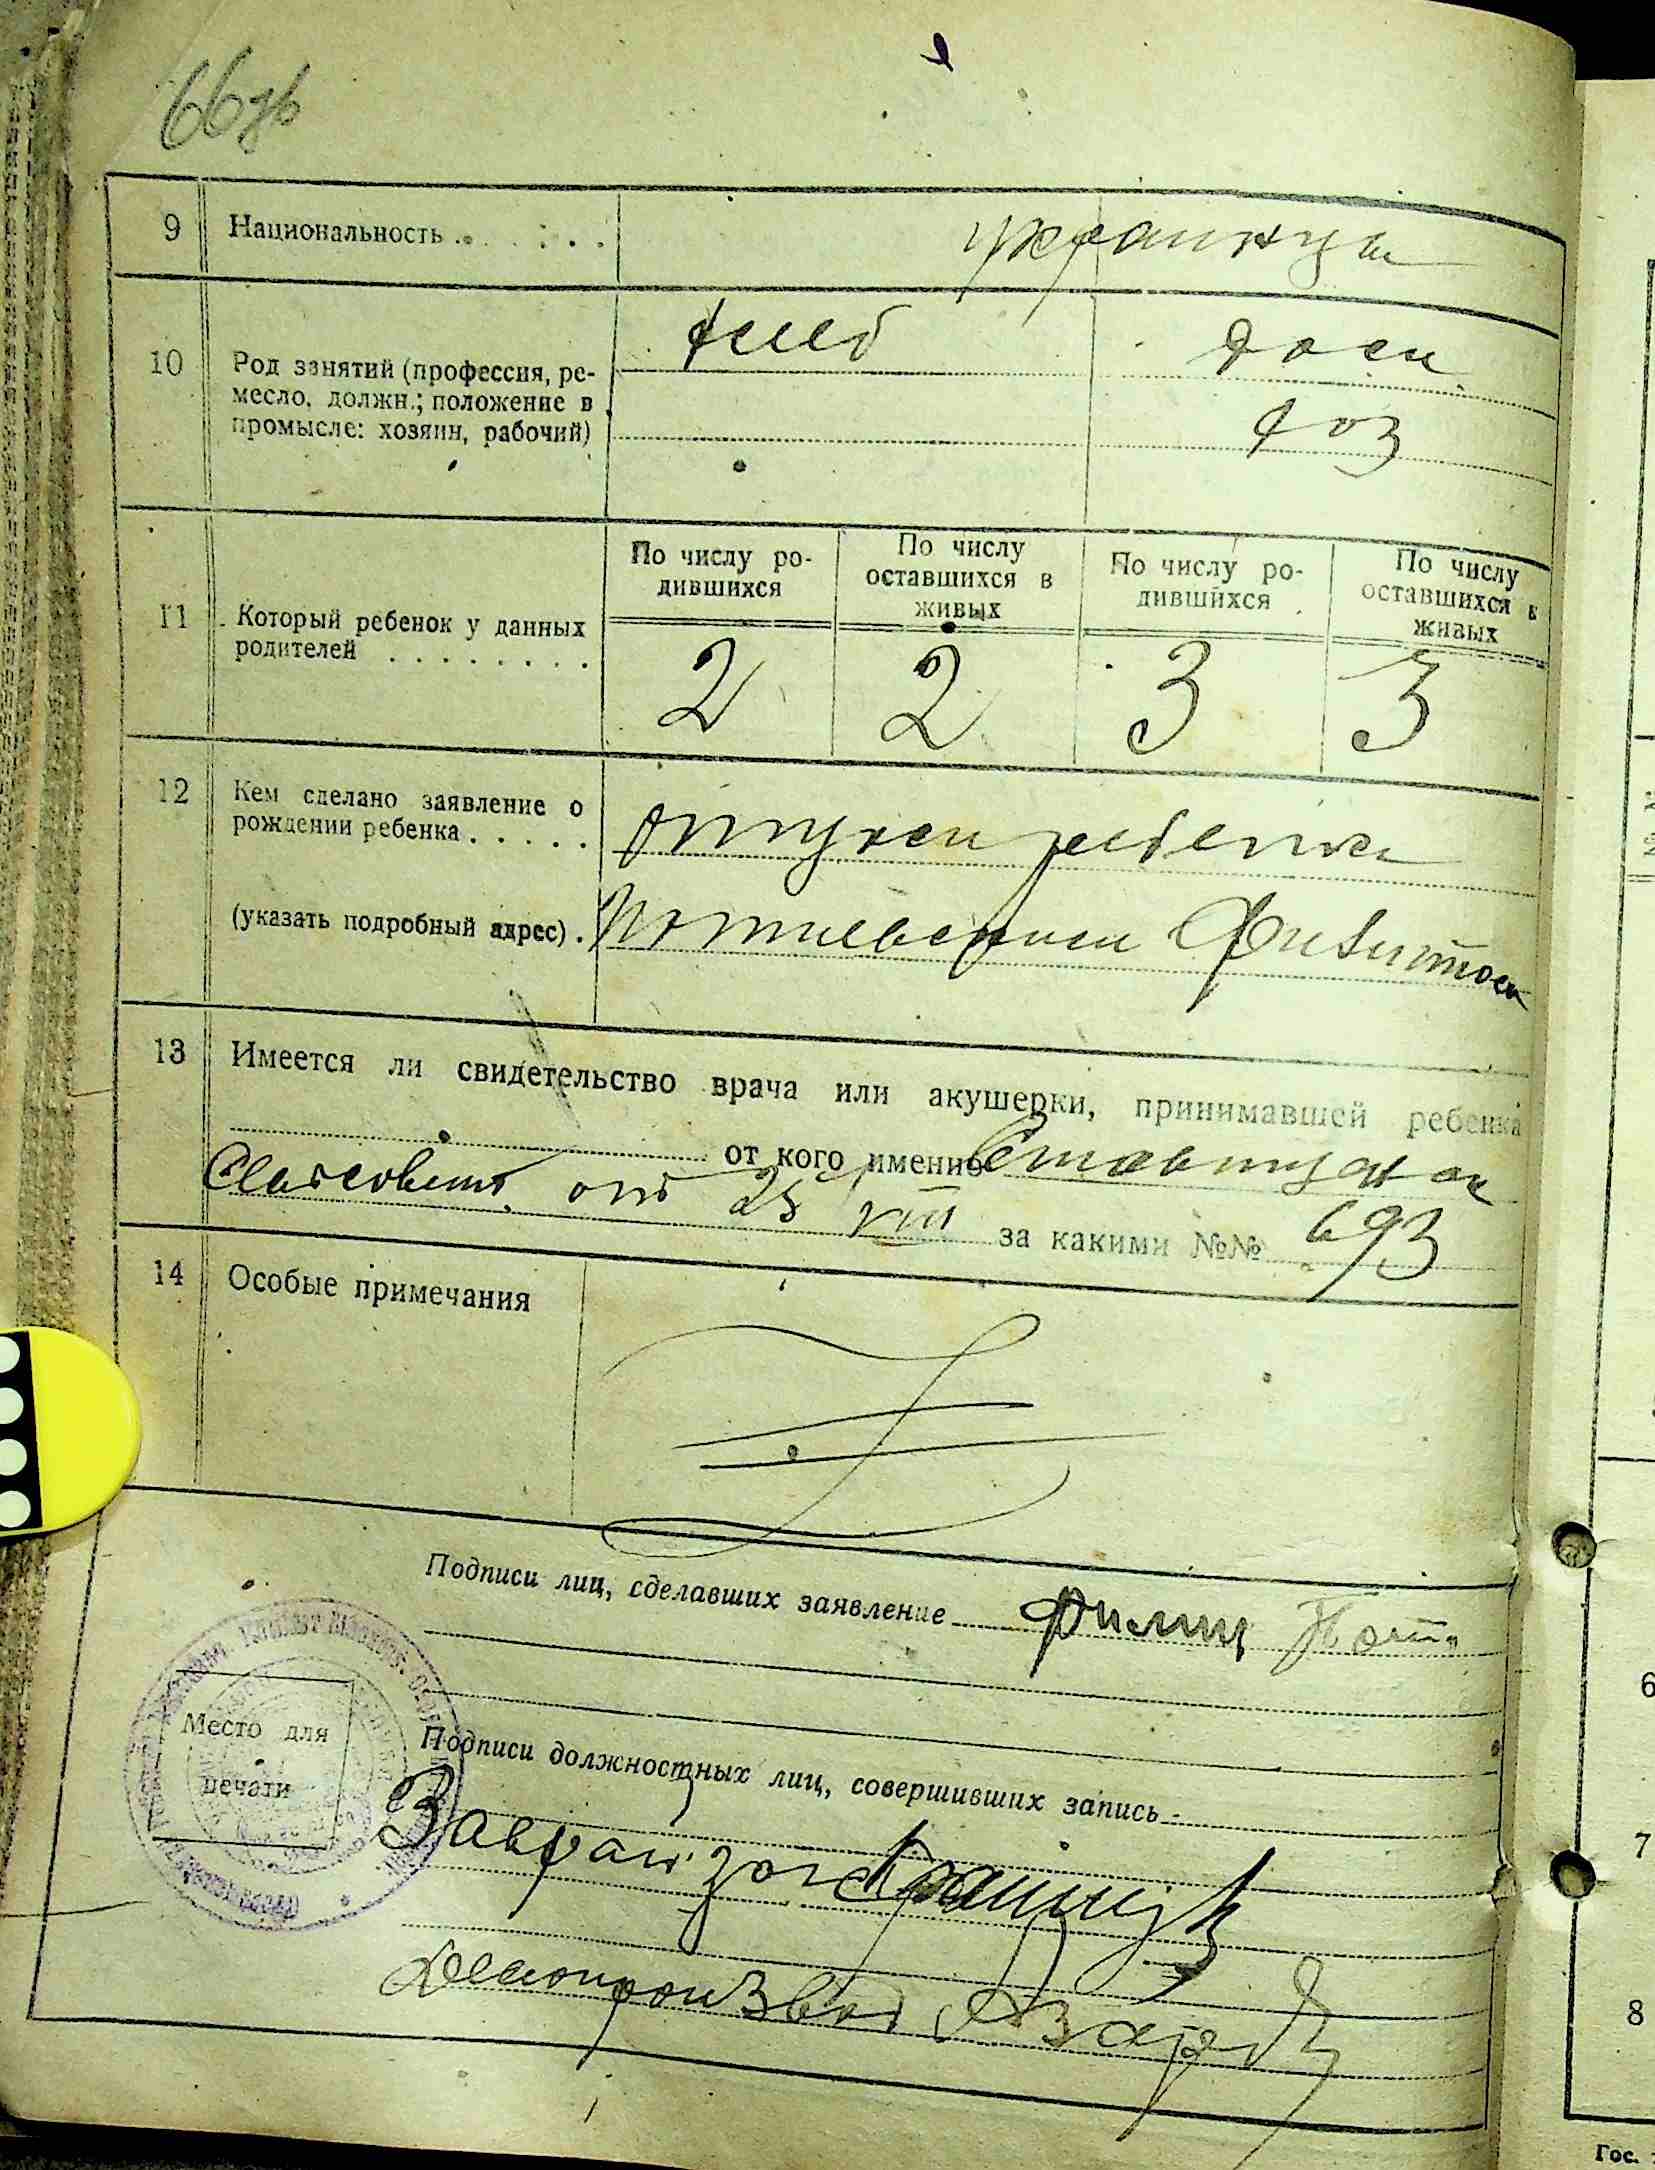 66об
9 Национальность . . . . . . украинцы
10 Род занятий (профессия, ре-
месло, должн.; положение в
промысле: хозяин, рабочий)
хлеб дом
хоз
По числу ро-
дившихся
По числу
оставшихся в
живых
По числу ро-
дившихся
По числу
оставшихся в
живых
11 Который ребенок у данных
родителей . . . . . . . . .
2 2 3 3
12 Кем сделано заявление о
рождении ребенка . . . . . отцом ребенка
(указать подробный адрес) .
13 Имеется ли свидетельство врача или акушерки, принимавшей ребенка
от кого именно
сельсовет от 25 VIII за какими №№ 693
14 Особые примечания
Подписи лиц, сделавших заявление Филип
Место для
печати
Подписи должностных лиц, совершивших запись
Заврайзагс
Делопроизвод
6
7
8
Гос.